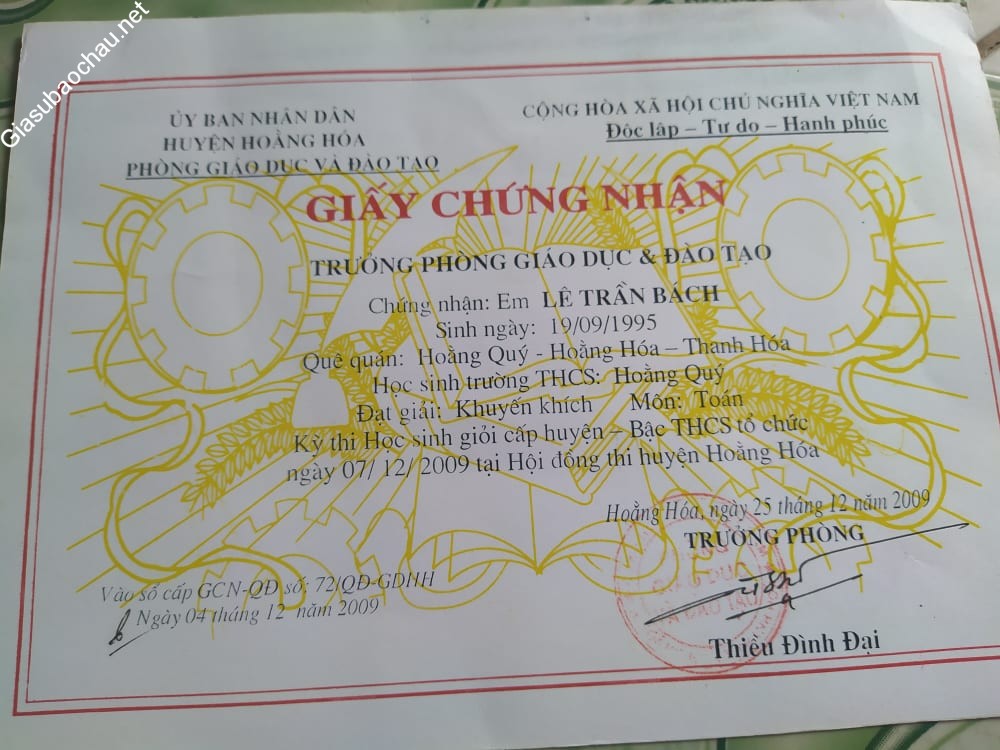 Giasubaochau.net
ỦY BAN NHÂN DÂN
HUYỆN HOẰNG HÓA
PHÒNG GIÁO DỤC VÀ ĐÀO TẠO
CỘNG HÒA XÃ HỘI CHỦ NGHĨA VIỆT NAM
Độc lập – Tự do – Hạnh phúc
GIẤY CHỨNG NHẬN
TRƯỞNG PHÒNG GIÁO DỤC & ĐÀO TẠO
Chứng nhận: Em LÊ TRẦN BÁCH
Sinh ngày: 19/09/1995
Quê quán: Hoằng Quý - Hoằng Hóa – Thanh Hóa
Học sinh trường THCS: Hoằng Quý
Đạt giải: Khuyến khích Môn: Toán
Kỳ thi Học sinh giỏi cấp huyện – Bậc THCS tổ chức
ngày 07/ 12/ 2009 tại Hội đồng thi huyện Hoằng Hóa
Hoằng Hóa, ngày 25 tháng 12 năm 2009
TRƯỞNG PHÒNG
PHÒNG
GIÁO DỤC
VÀ ĐÀO TẠO
Thiều Đình Đại
Vào sổ cấp GCN-QĐ số: 72/QĐ-GDHH
Ngày 04 tháng 12 năm 2009